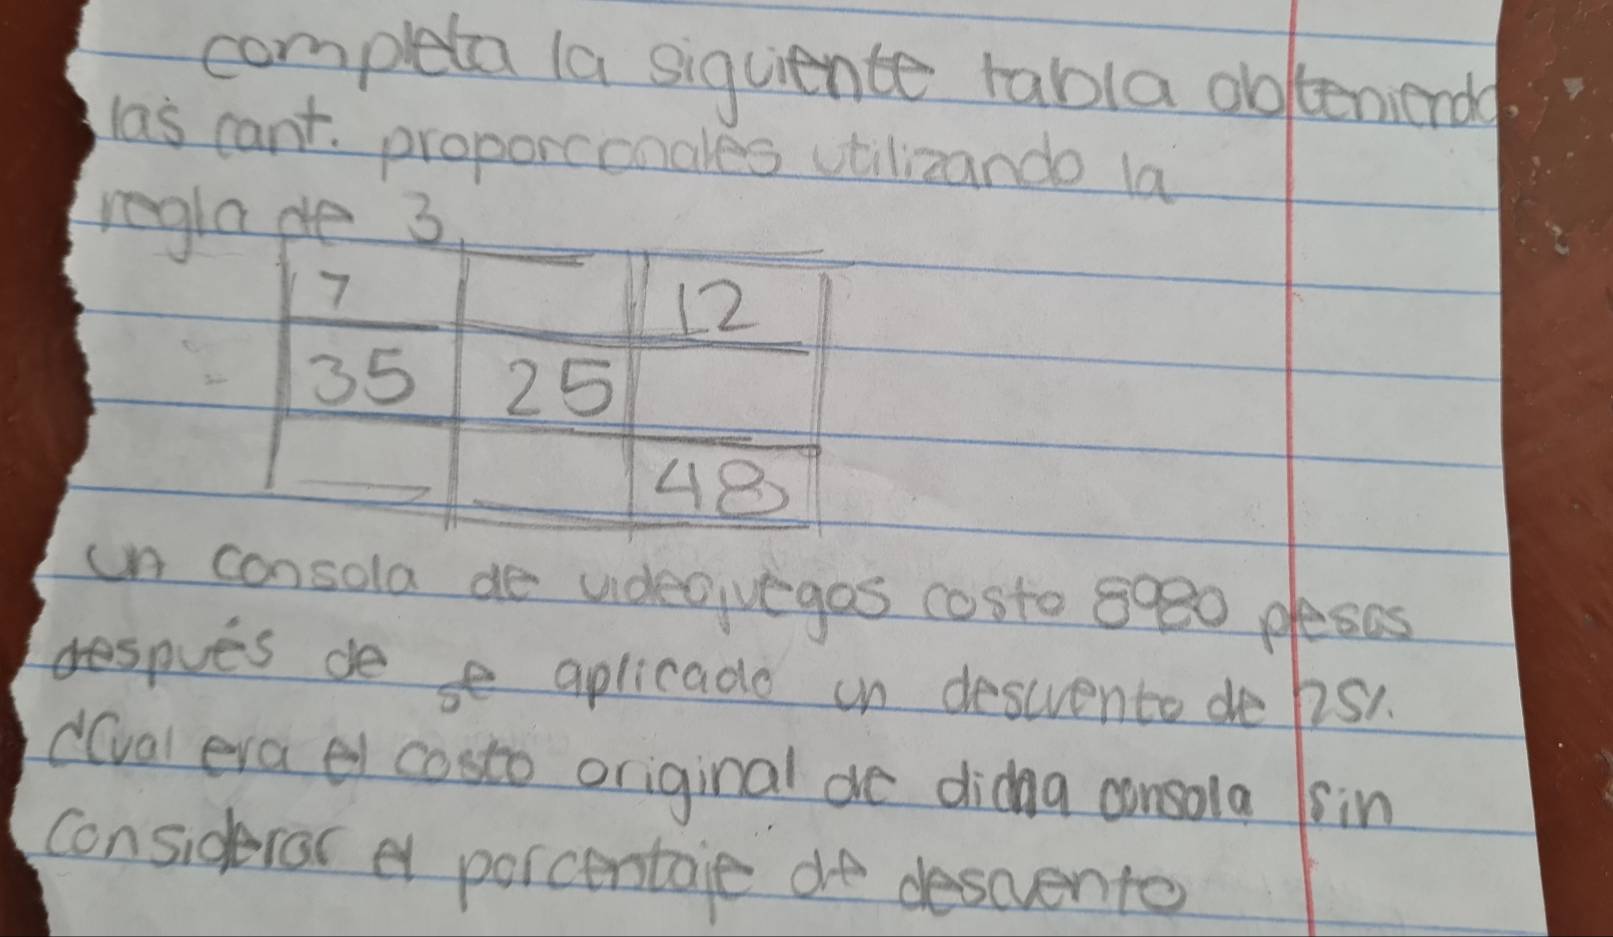 completa la siguiente tabla obteniendo
las cant. proporcconales utilizando la
regla de 3
7 12
35 25
48
un consola de videojuegos costo 8980 pesos
después de se aplicado un descuento de 25%.
¿Cual era el costo original de dicha consola sin
considerar el porcentaje de descuento